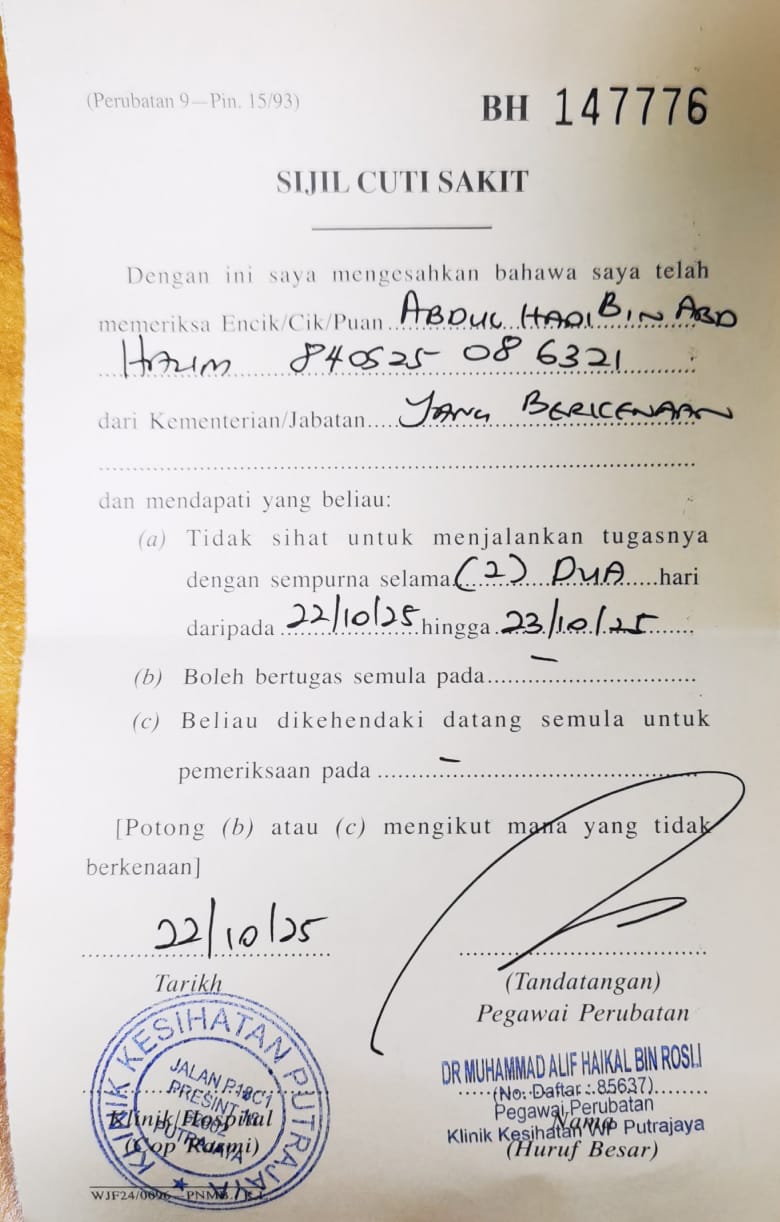 (Perubatan 9—Pin. 15/93)
BH 147776
SIJIL CUTI SAKIT
Dengan ini saya mengesahkan bahawa saya telah
memeriksa Encik/Cik/Puan ABDUL HADI BIN ABD
HALIM 840525-08 6321
dari Kementerian/Jabatan YANG BERKENAAN
dan mendapati yang beliau:
(a) Tidak sihat untuk menjalankan tugasnya
dengan sempurna selama (2) DUA hari
daripada 22/10/25 hingga 23/10/25
(b) Boleh bertugas semula pada –
(c) Beliau dikehendaki datang semula untuk
pemeriksaan pada –
[Potong (b) atau (c) mengikut mana yang tidak
berkenaan]
22/10/25
Tarikh
(Tandatangan)
Pegawai Perubatan
KLINIK KESIHATAN PUTRAJAYA
JALAN P18C1
PRESINT 18
PUTRAJAYA
Klinik/Hospital
(Cop Rasmi)
DR MUHAMMAD ALIF HAIKAL BIN ROSLI
(No. Daftar : 85637)
Pegawai Perubatan
Nama
Klinik Kesihatan Putrajaya
(Huruf Besar)
WJF24/0696—PNMB.